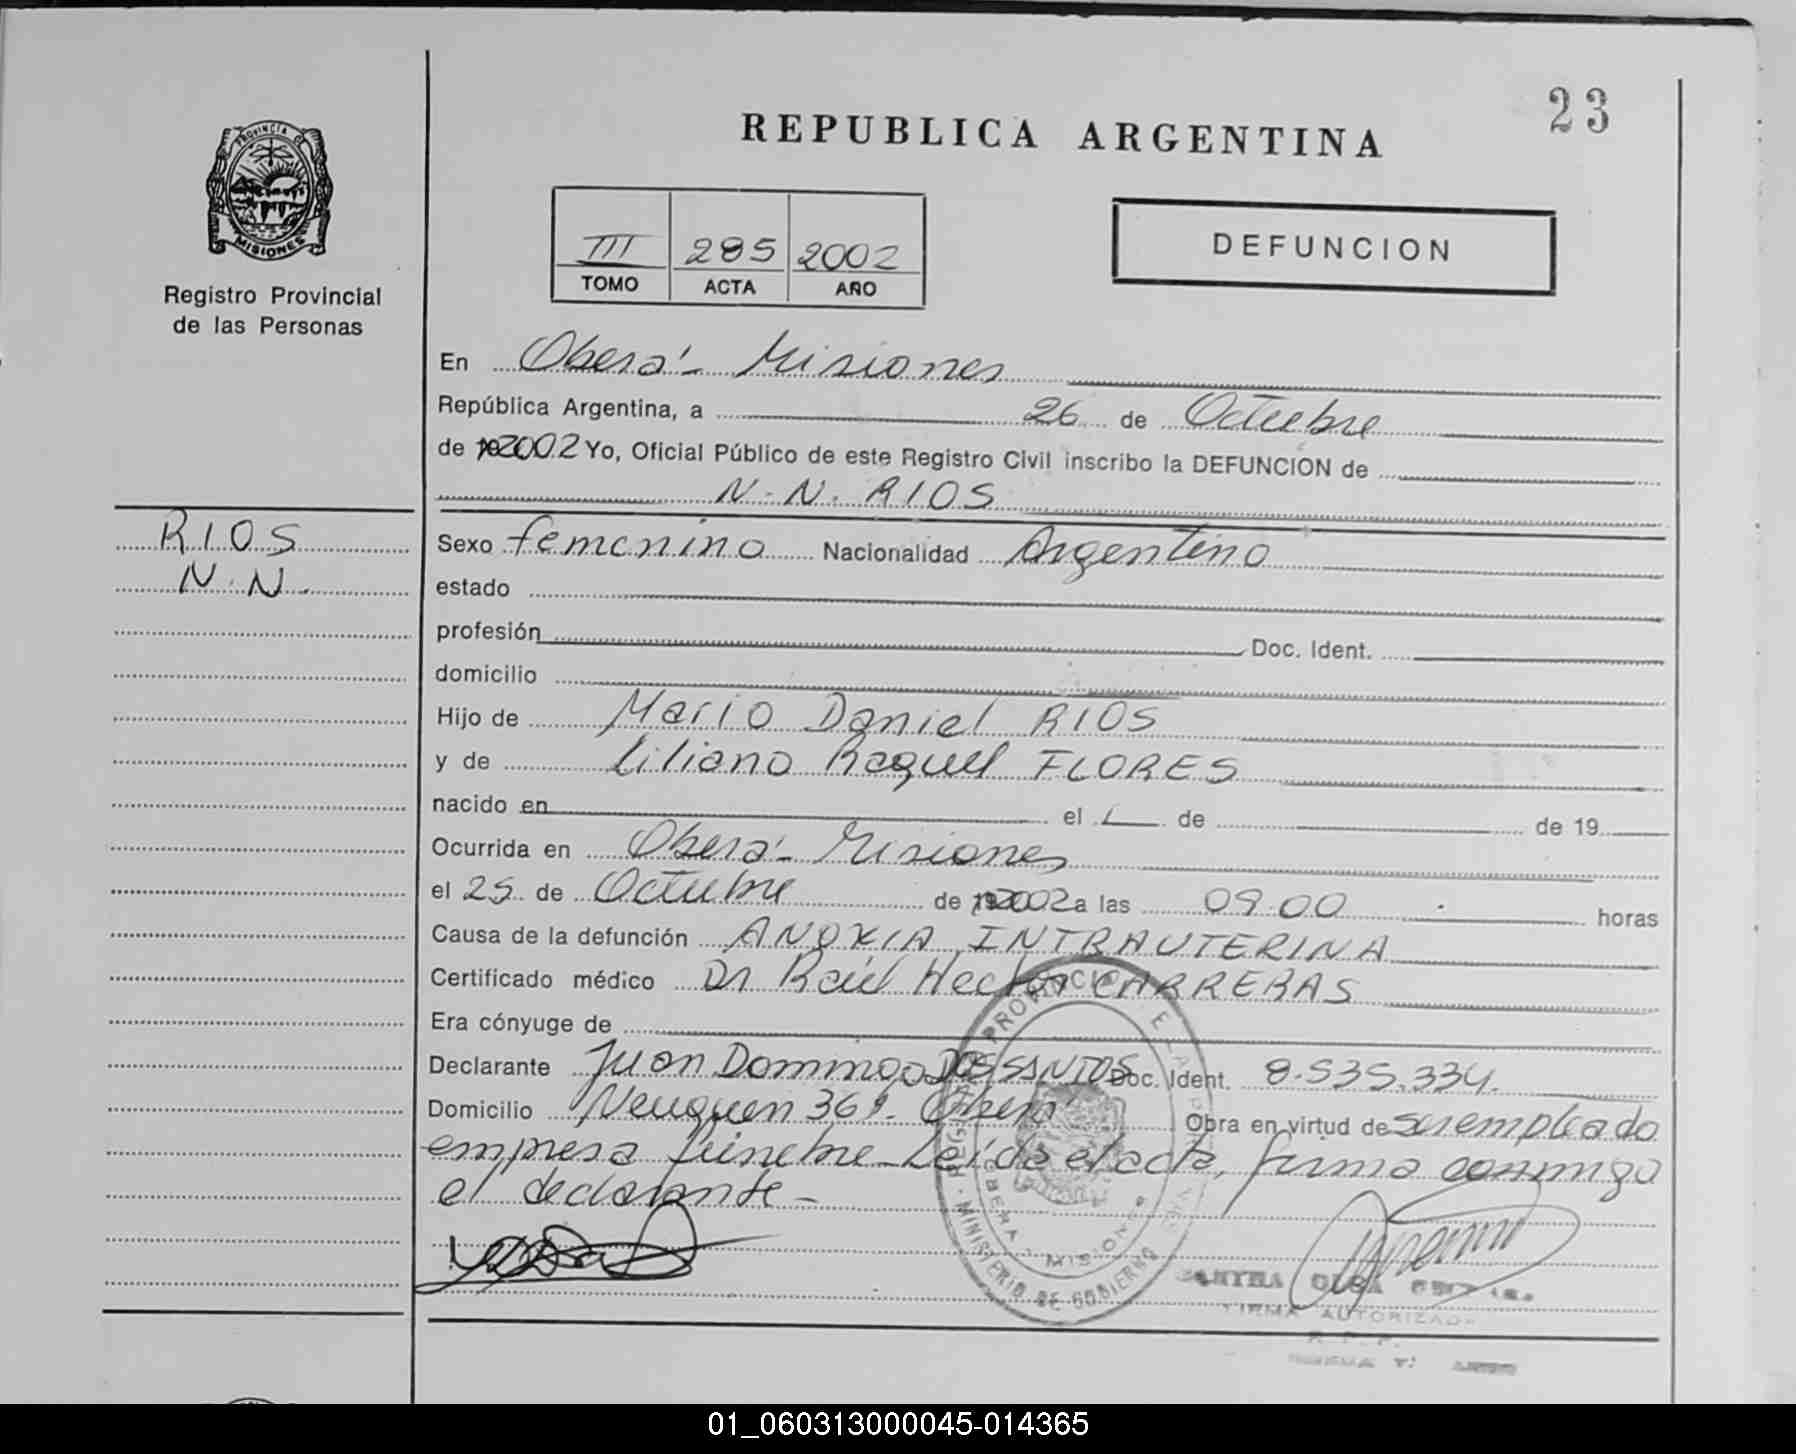 23
REPUBLICA ARGENTINA
PROVINCIA DE
MISIONES
Registro Provincial
de las Personas
III 285 2002
TOMO ACTA AÑO
DEFUNCION
En Oberá - Misiones
República Argentina, a 26 de Octubre
de 2002 Yo, Oficial Público de este Registro Civil inscribo la DEFUNCION de
N. N. RIOS
RIOS
N. N.
Sexo femenino Nacionalidad Argentino
estado
profesión Doc. Ident.
domicilio
Hijo de Mario Daniel RIOS
y de Liliana Raquel FLORES
nacido en el de de 19
Ocurrida en Oberá - Misiones
el 25 de Octubre de 2002 a las 09.00 horas
Causa de la defunción ANOXIA INTRAUTERINA
Certificado médico Dr Raúl Hector CARRERAS
Era cónyuge de
Declarante Juan Domingo DOS SANTOS Doc. Ident. 8.535.334.
Domicilio Neuquen 369. Oberá Obra en virtud de su empleado
empresa fúnebre - Leída el acta, firma conmigo
el declarante -
MINISTERIO DE GOBIERNO
OBERA - MISIONES
OLGA
FIRMA AUTORIZADA
R. P. P.
01_060313000045-014365